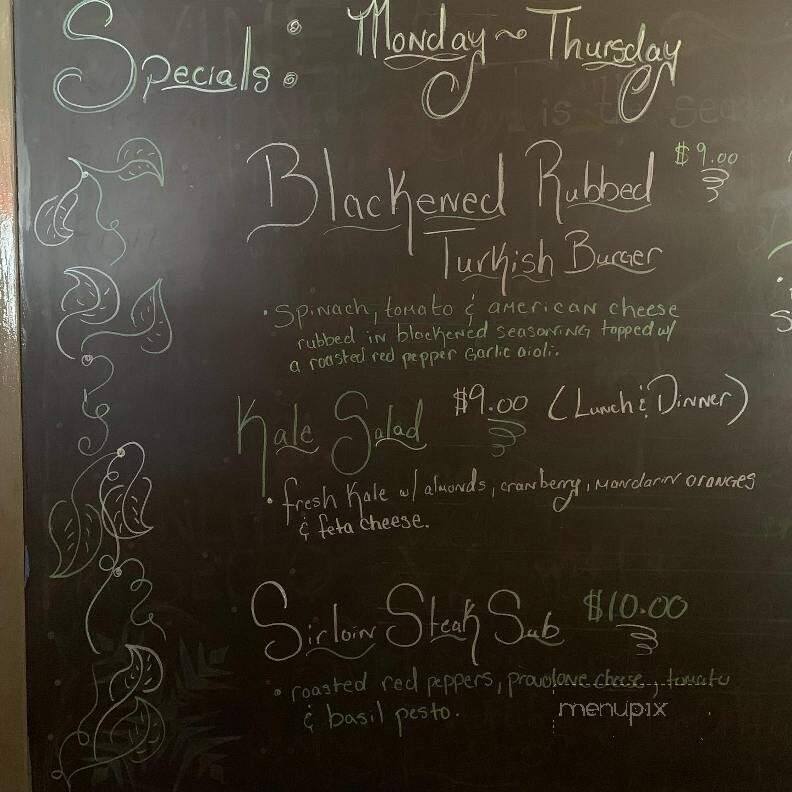 Specials: Monday ~ Thursday
Blackened Rubbed $9.00
Turkish Burger
• Spinach, tomato & american cheese
rubbed in blackened seasoning topped w/
a roasted red pepper Garlic aioli.
Kale Salad $9.00 (Lunch & Dinner)
• fresh Kale w/ almonds, cranberry, mandarin oranges
& feta cheese.
Sirloin Steak Sub $10.00
• roasted red peppers, provolone cheese, tomato
& basil pesto.
menupix